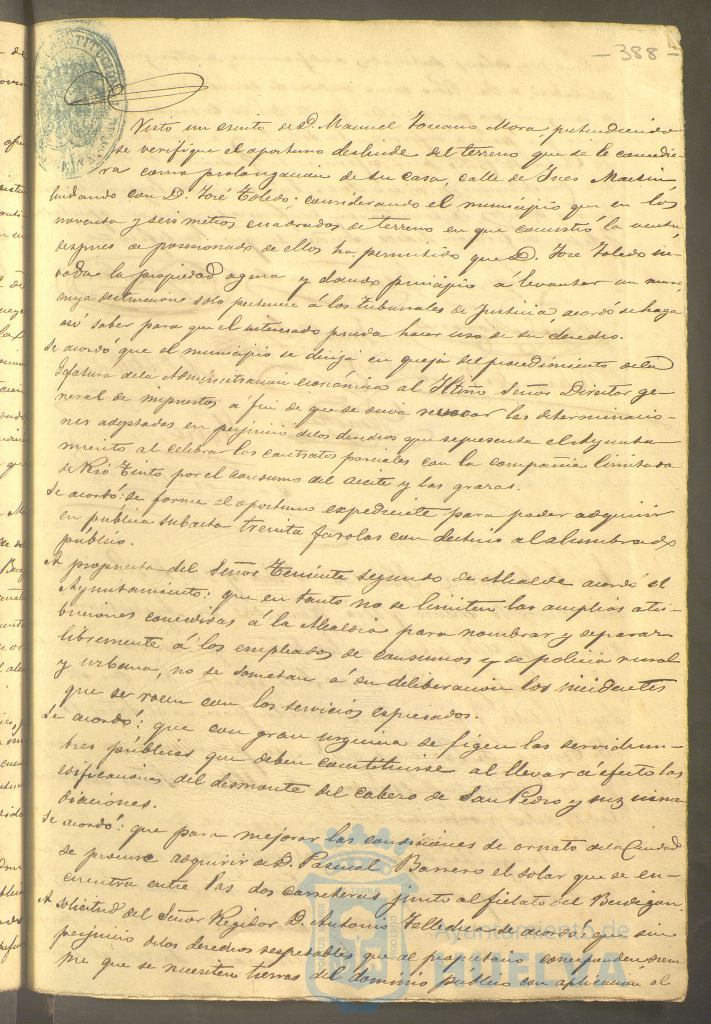 - 388 -
Visto un escrito de D. Manuel Toscano Mora, pretendiendo
se verifique el oportuno deslinde del terreno que se le concedie-
ra como prolongacion de su casa, calle de Ynés Martin
lindando con D. José Toledo: considerando el municipio que en los
noventa y seis metros cuadrados de terreno en que consistió la venta
después de posesionado de ellos ha permitido que D. José Toledo in-
vada la propiedad agena y dando principio á levantar un muro
cuya destruccion solo pertenece á los tribunales de Justicia, acordó se haga
asi saber para que el interesado pueda hacer uso de su derecho.
Se acordó que el municipio se dirija en queja del procedimiento de la
Gefatura de la Administracion económica al Yltmo Señor Director ge-
neral de impuestos á fin de que se sirva revocar las determinacio-
nes adoptadas en perjuicio de los derechos que representa el Ayunta
miento al celebrar los contratos parciales con la compañia limitada
de Rio Tinto por el consumo del aceite y las grasas.
Se acordó: se forme el oportuno expediente para poder adquirir
en pública subasta treinta farolas con destino al alumbrado
público.
A propuesta del Señor Teniente segundo de Alcalde acordó el
Ayuntamiento: que en tanto no se limiten las amplias atri-
buciones concedidas á la Alcaldia para nombrar y separar
libremente á los empleados de consumos y de policia rural
y urbana, no se sometan á su deliberacion los incidentes
que se rocen con los servicios espresados.
Se acordó: que con gran urgencia se figen las servidum-
bres públicas que deben constituirse al llevar á efecto las
edificaciones del desmonte del cabezo de San Pedro y sus inme
diaciones.
Se acordó: que para mejorar las condiciones de ornato de la Ciudad
se procure adquirir de D. Pascual Barrero el solar que se en-
cuentra entre las dos carreteras junto al fielato del
A solicitud del Señor Regidor D. Antonio se acordó: que sin
perjuicio de los derechos respetables que al propietario corresponden siem
pre que se necesiten tierras del dominio público con aplicacion al
Ayuntamiento de
HUELVA